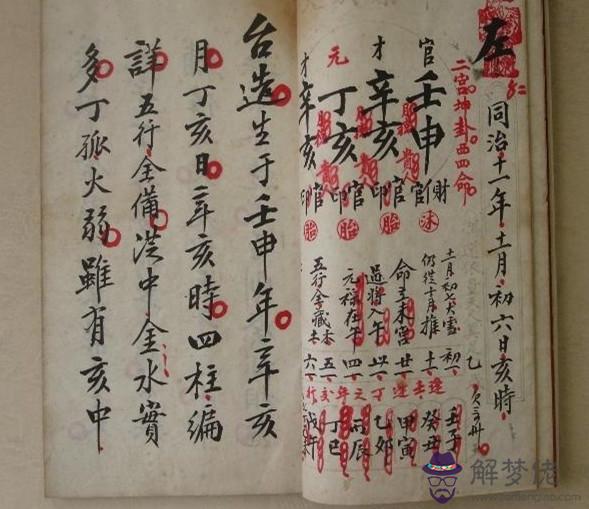 左
同治十一年十一月初六日亥時
二宫坤卦西四命
官 壬申 財官印
才 辛亥 官印
元 丁亥 官印
才 辛亥 官印
沐
胎
胎
胎
十一月初七大雪
仍從十月推
命主未宮
過將入午
元禄在午
五行全藏木
初一 十一 廿一 卅一 四一 五一 六一
逢去逢丁之年交行
壬子
癸丑
甲寅
乙卯
丙辰
丁巳
戊午
台造生于壬申年辛亥
月丁亥日辛亥時四柱編
詳五行全備洪中金水實
多丁孤火弱雖有亥中
解梦佬